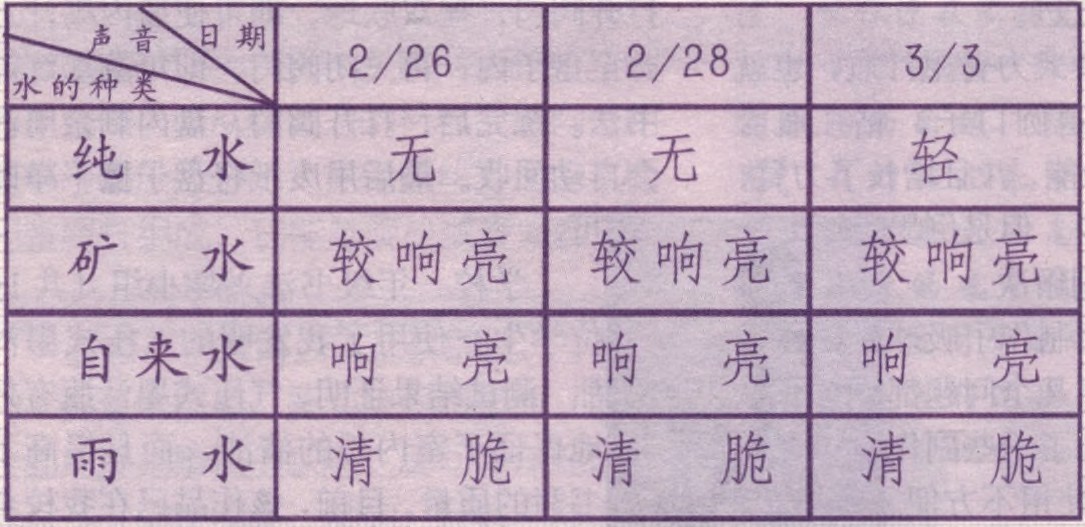 声音 日期 2/26 2/28 3/3
水的种类
纯水 无 无 轻
矿水 较响亮 较响亮 较响亮
自来水 响亮 响亮 响亮
雨水 清脆 清脆 清脆